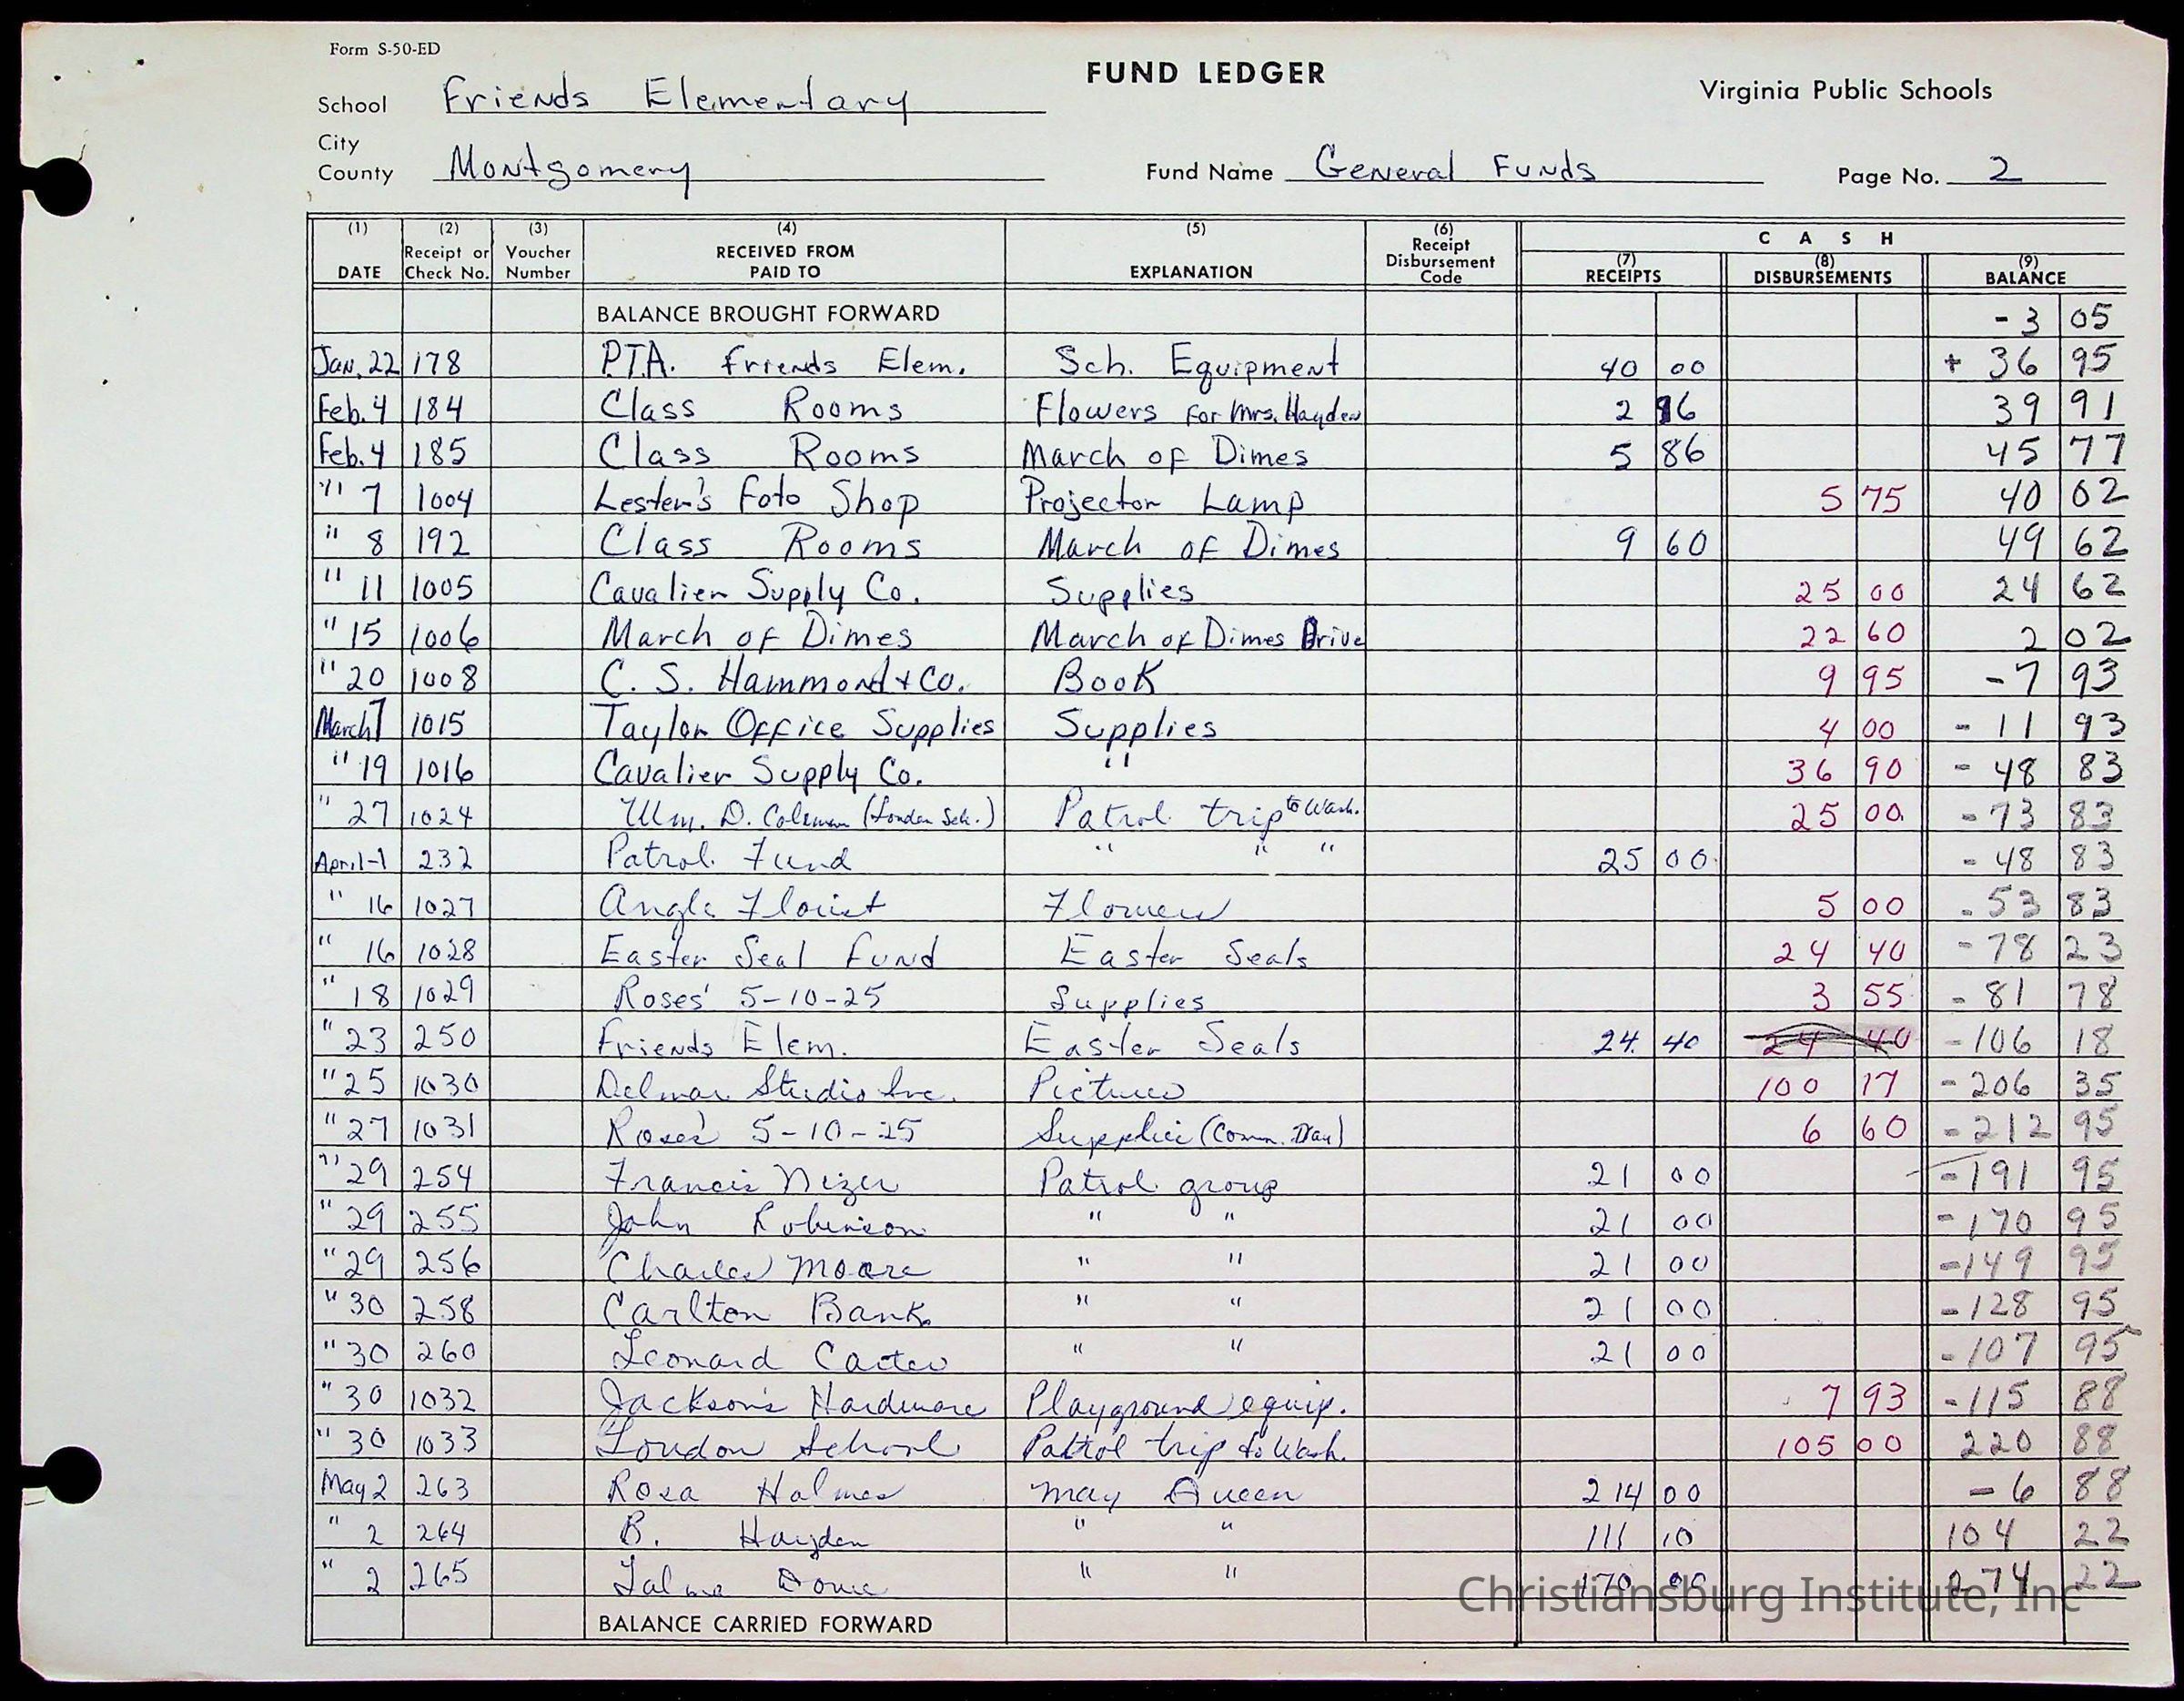 Form S-50-ED
FUND LEDGER
Virginia Public Schools
School Friends Elementary
City
County Montgomery
Fund Name General Funds
Page No. 2
(1) (2) (3) (4) (5) (6) C A S H
DATE Receipt or Check No. Voucher Number RECEIVED FROM PAID TO EXPLANATION Receipt Disbursement Code (7) RECEIPTS (8) DISBURSEMENTS (9) BALANCE
BALANCE BROUGHT FORWARD -3 05
Jan. 22 178 P.T.A. Friends Elem. Sch. Equipment 40 00 + 36 95
Feb. 4 184 Class Rooms Flowers for Mrs. Hayden 2 96 39 91
Feb. 4 185 Class Rooms March of Dimes 5 86 45 77
" 7 1004 Lester's Foto Shop Projector Lamp 5 75 40 02
" 8 192 Class Rooms March of Dimes 9 60 49 62
" 11 1005 Cavalier Supply Co. Supplies 25 00 24 62
" 15 1006 March of Dimes March of Dimes Drive 22 60 2 02
" 20 1008 C. S. Hammond & Co. Book 9 95 -7 93
March 7 1015 Taylor Office Supplies Supplies 4 00 - 11 93
" 19 1016 Cavalier Supply Co. " 36 90 - 48 83
" 27 1024 Wm. D. Coleman (Loudon Sch.) Patrol trip to Wash. 25 00 - 73 83
April-1 232 Patrol Fund " " " 25 00 - 48 83
" 16 1027 Angle Florist Flowers 5 00 - 53 83
" 16 1028 Easter Seal Fund Easter Seals 24 40 - 78 23
" 18 1029 Roses' 5-10-25 Supplies 3 55 - 81 78
" 23 250 Friends Elem. Easter Seals 24. 40 24 40 - 106 18
" 25 1030 Delmar Studio Inc. Pictures 100 17 - 206 35
" 27 1031 Roses' 5-10-25 Supplies (Comm. Day) 6 60 - 212 95
" 29 254 Francis Nizer Patrol group 21 00 - 191 95
" 29 255 John Robinson " " 21 00 - 170 95
" 29 256 Charles Moore " " 21 00 - 149 95
" 30 258 Carlton Banks " " 21 00 - 128 95
" 30 260 Leonard Carter " " 21 00 - 107 95
" 30 1032 Jackson's Hardware Playground equip. 7 93 - 115 88
" 30 1033 Loudon School Patrol trip to Wash. 105 00 220 88
May 2 263 Rosa Holmes May Queen 214 00 - 6 88
" 2 264 B. Hayden " " 111 10 104 22
" 2 265 " " 170 00 274 22
BALANCE CARRIED FORWARD
Christiansburg Institute, Inc